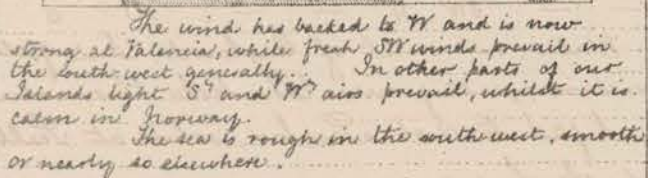 The wind has backed to W and is now
strong at Valencia, while fresh SW winds prevail in
the south west generally.. In other parts of our
Islands light Sʸ and Wʸ airs prevail, whilst it is
calm in Norway.
The sea is rough in the south west, smooth
or nearly so elsewhere.